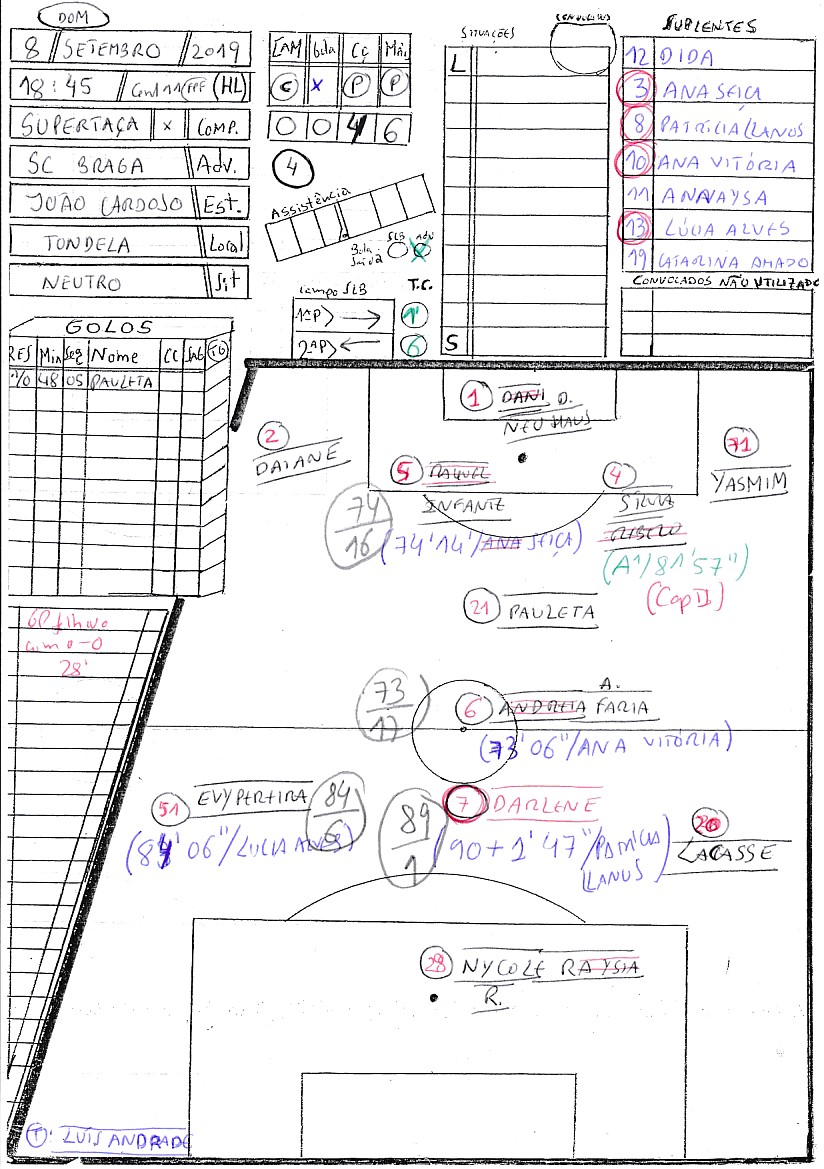 DOM
8 / SETEMBRO / 2019
18:45 / (HL)
SUPERTAÇA x COMP.
SC BRAGA Adv.
JOÃO CARDOSO Est.
TONDELA Local
NEUTRO Sit
CAM bola Cç
C x P P
0 0 4 6
4
Assistência
Bola Saída SLB ADV
Campo SLB T.C.
1ªP> 1'
2ªP> 6
SITUAÇÕES
L
S
SUPLENTES
12 DIDA
3 ANA SEIÇA
8 PATRÍCIA LLANOS
10 ANA VITÓRIA
11 ANA VAYSA
13 LÚCIA ALVES
19 CATARINA AMADO
CONVOCADOS NÃO UTILIZADO
GOLOS
RES Min Seg Nome CC
1/0 48 05 PAULETA
1 DANI D.
NEUHAUS
2
DAIANE
5 RAQUEL
INFANTE
74
16
(74'14"/ANA SEIÇA)
4
SÍLVIA
REBELO
(A1/81'57")
(Cap II)
71
YASMIM
21 PAULETA
28'
73
17
A.
6 ANDREIA FARIA
(73'06"/ANA VITÓRIA)
51 EVY PEREIRA
84
6
(84'06"/LUCIA ALVES)
89
1
7 DARLENE
(90+1'47"/PATRICIA
LLANUS)
20
LACASSE
28 NYCOLE RAYSIA
R.
T: LUÍS ANDRADE